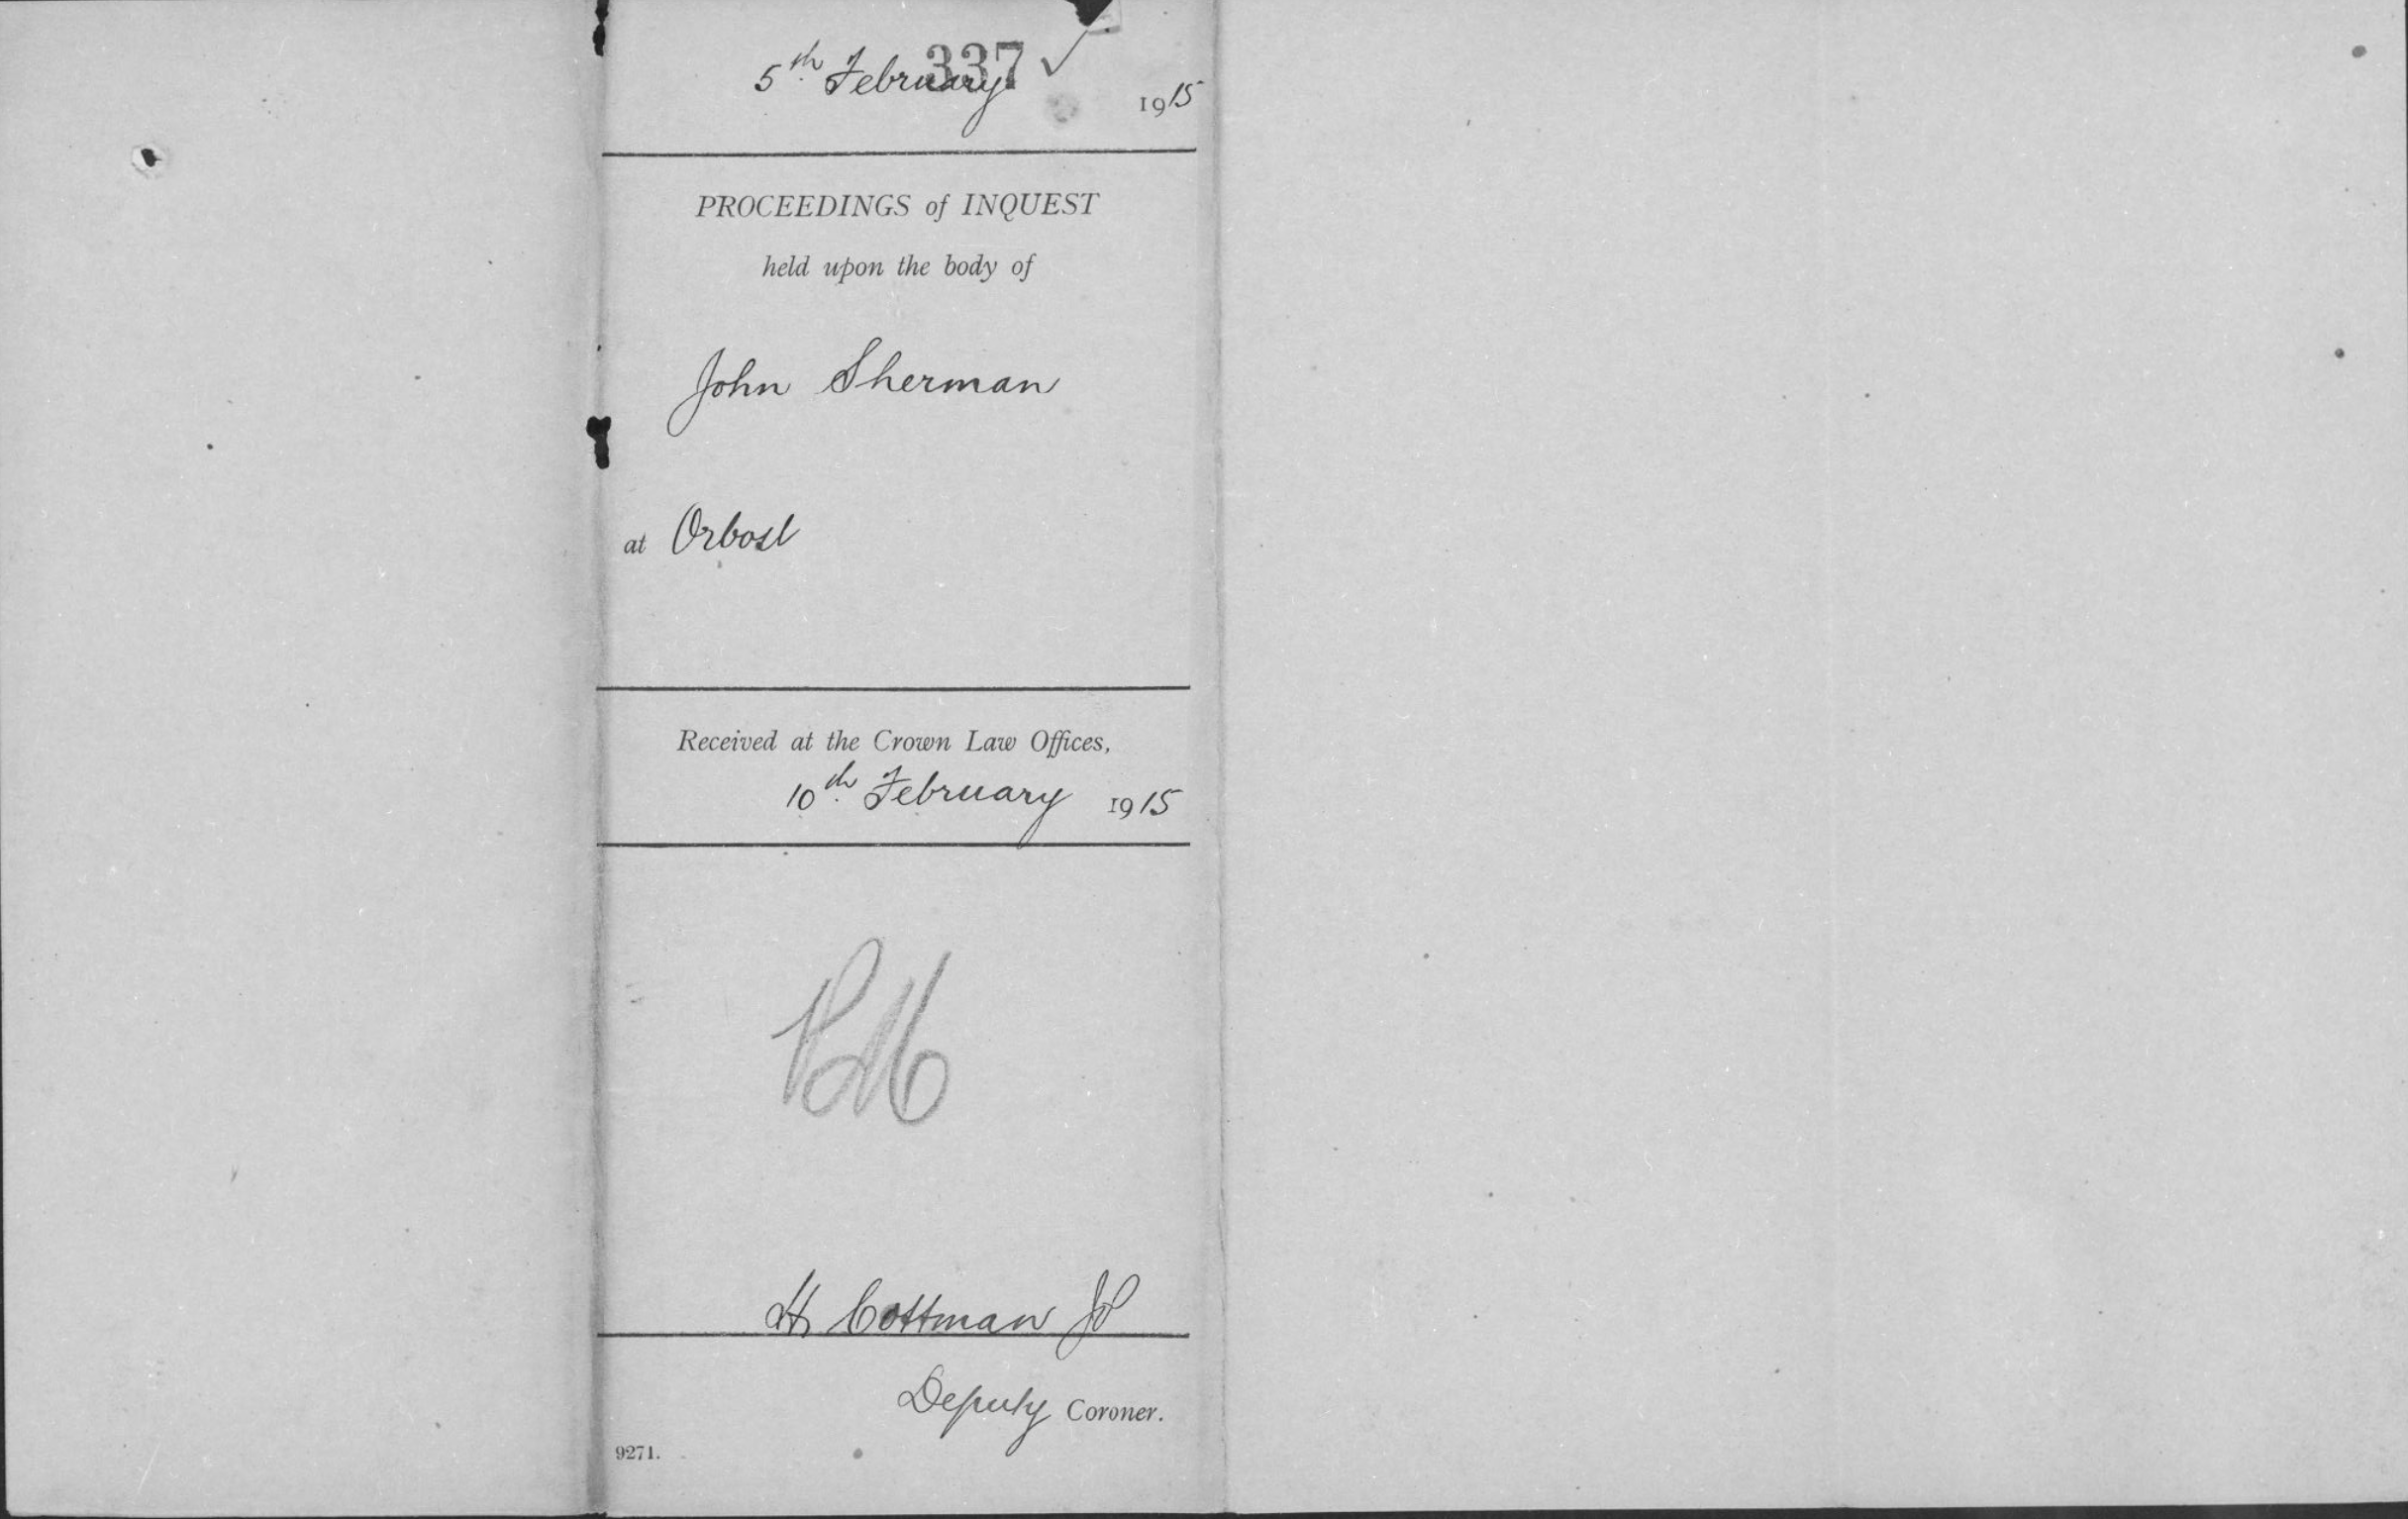 337 ✓
5th February 1915
PROCEEDINGS of INQUEST
held upon the body of
John Sherman
at Orbost
Received at the Crown Law Offices,
10th February 1915
H Cottman JP
Deputy Coroner.
9271.